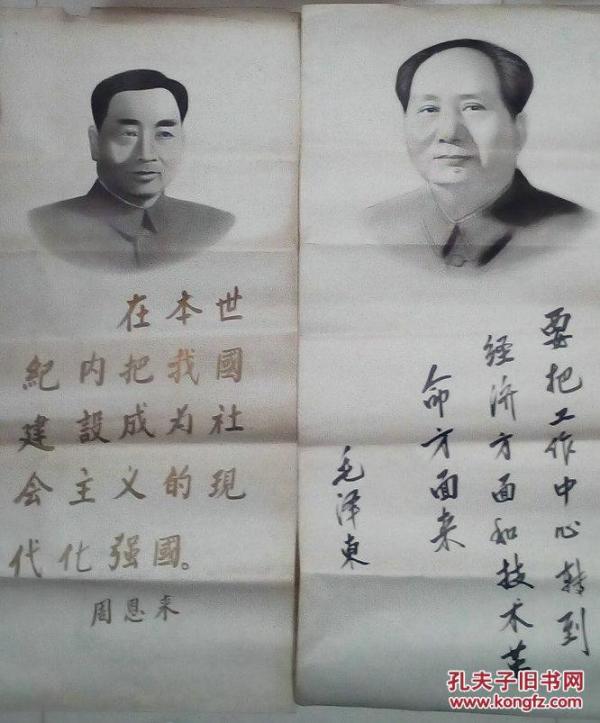 在本世
紀内把我國
建設成为社
会主义的現
代化强國。
周恩来
要把工作中心转到
经济方面和技术革
命方面来
毛泽東
孔夫子旧书网
www.kongfz.com